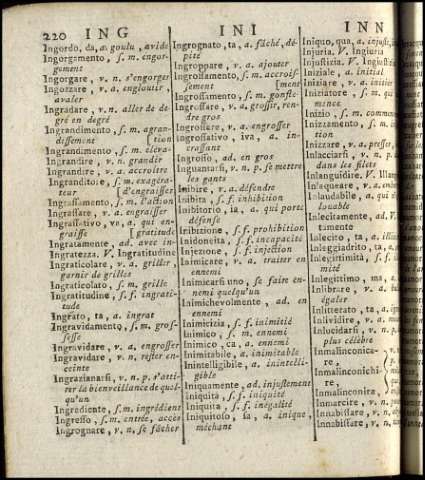 220 ING INI INN
Ingordo, da, a. goulu, avide
Ingorgamento, s. m. engor-
gement
Ingorgare, v. n. s'engorger
Ingozzare, v. a. engloutir,
avaler
Ingradare, v. n. aller de de-
gré en degré
Ingrandimento, s. m. agran-
dissement [tion
Ingrandimento, s. m. éléva-
Ingrandire, v. n. grandir
Ingrandire, v. a. accroître
Ingranditore, s. m. exagéra-
teur [d'engraisser
Ingrassamento, s. m. l'action
Ingrassare, v. a. engraisser
Ingrassativo, va, a. qui en-
graisse [gratitude
Ingratamente, ad. avec in-
Ingratezza. V. Ingratitudine
Ingraticolare, v. a. griller,
garnir de grilles
Ingraticolato, s. m. grille
Ingratitudine, s. f. ingrati-
tude
Ingrato, ta, a. ingrat
Ingravidamento, s. m. gros-
sesse
Ingravidare, v. a. engrosser
Ingravidare, v. n. rester en-
ceinte
Ingrazianarsi, v. n. p. s'atti-
rer la bienveillance de quel-
qu'un
Ingrediente, s. m. ingrédient
Ingresso, s. m. entrée, accès
Ingrognare, v. n. se fâcher
Ingrognato, ta, a. fâché, dé-
pité
Ingroppare, v. a. ajouter
Ingrossamento, s. m. accrois-
sement [ment
Ingrossamento, s. m. gonfle-
Ingrossare, v. a. grossir, ren-
dre gros
Ingrossare, v. a. engrosser
Ingrossativo, iva, a. in-
crassant
Ingrosso, ad. en gros
Inguantarsi, v. n. p. se mettre
les gants
Inibire, v. a. défendre
Inibita, s. f. inhibition
Inibitorio, ia, a. qui porte
défense
Inibizione, s. f. prohibition
Inidoneità, s. f. incapacité
Injezione, s. f. injection
Inimicare, v. a. traiter en
ennemi
Inimicarsi uno, se faire en-
nemi quelqu'un
Inimichevolmente, ad. en
ennemi
Inimicizia, s. f. inimitié
Inimico, s. m. ennemi
Inimico, ca, a. ennemi
Inimitabile, a. inimitable
Inintelligibile, a. inintelli-
gible
Iniquamente, ad. injustement
Iniquità, s. f. iniquité
Iniquità, s. f. inégalité
Iniquitoso, sa, a. inique,
méchant
Iniquo, qua, a. injuste,
Injuria. V. Ingiuria
Injustizia. V. Ingiustizia
Iniziale, a. initial
Iniziare, v. a. initier
Iniziatore, s. m. qui
mence
Inizio, s. m. commen
Inizzamento, s. m.
tion
Inizzare, v. a. presser,
Inlacciarsi, v. n. p.
dans les filets
Inlanguidire. V. Illan
Inlaqueare, v. a. emba
Inlaudabile, a. qui n'
louable
Inlecitamente, ad. V.
tamente
Inlecito, ta, a. illi
Inleggiadrito, ta, a.
Inlegittimità, s. f.
mité
Inlegittimo, ma, a.
Inlibrare, v. a.
égaler
Inlitterato, ta, a.
Inlividire, v. a.
Inlucidarsi, v. n. p.
plus célèbre
Inmalinconica-
re,
Inmalinconichi-
re,
Inmalinconire,
Inmarcire, v. n.
Innabissare, v. a.
Innabissare, v. n.